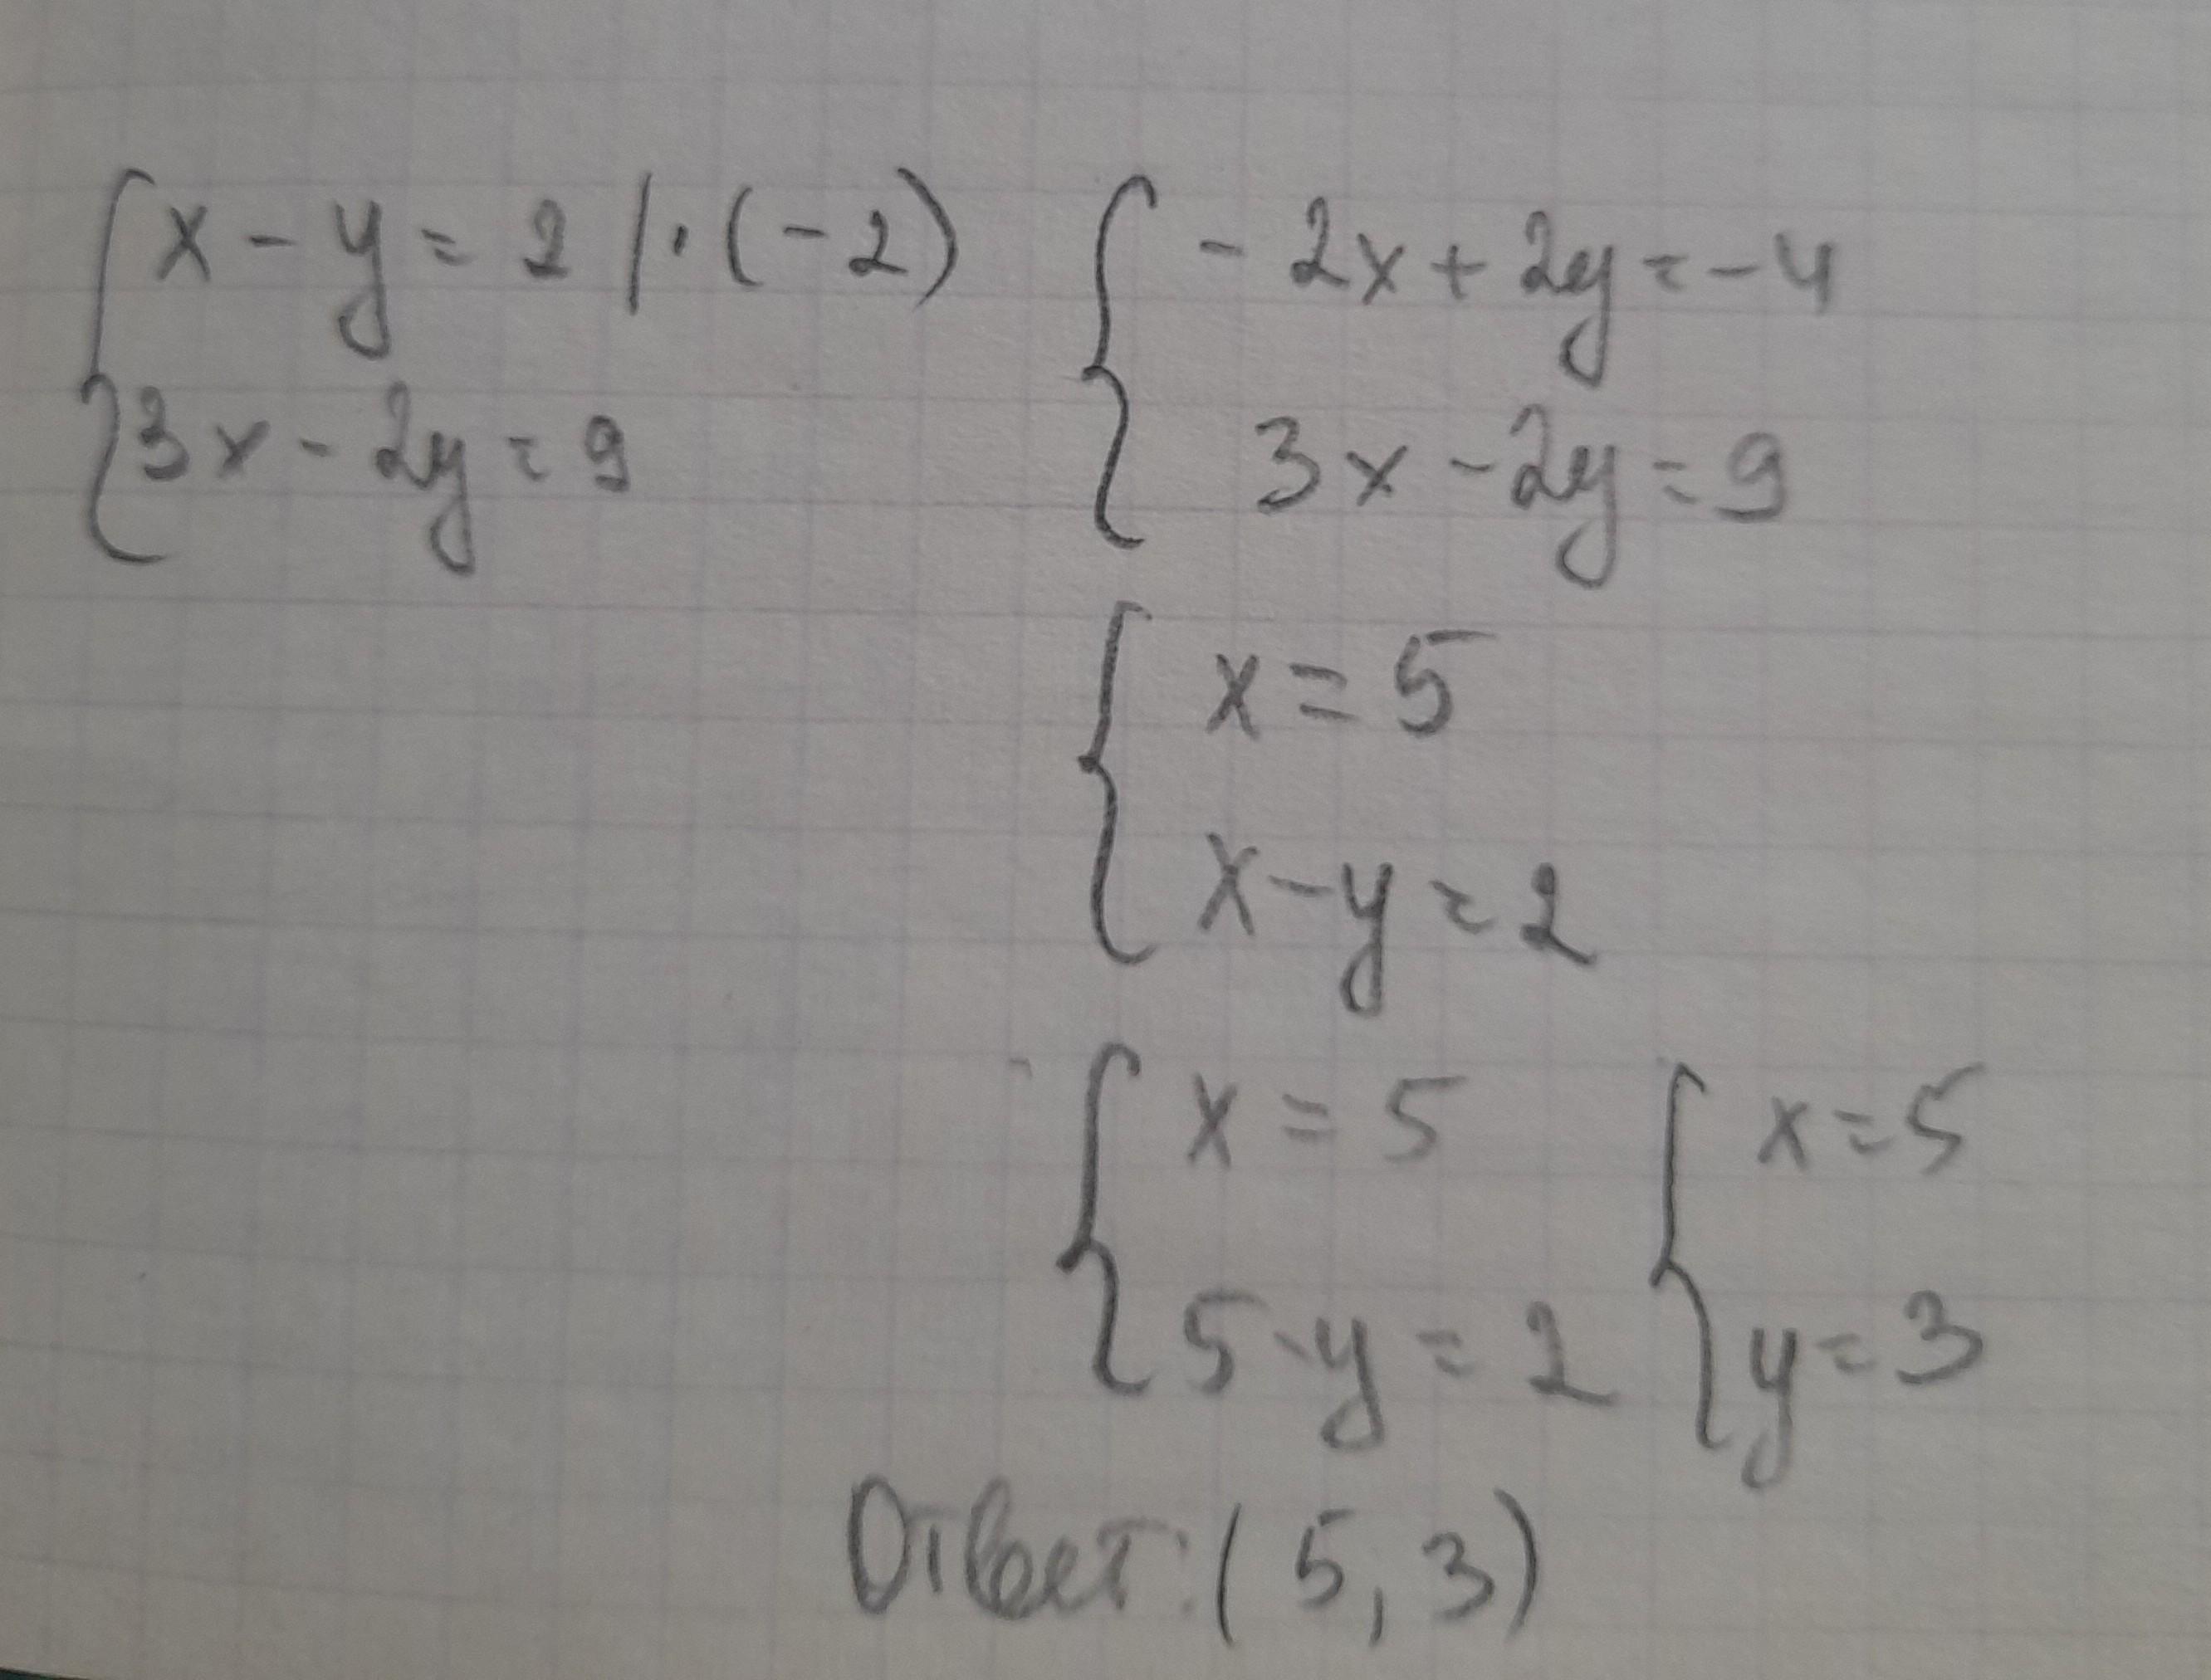 x - y = 2 | · (-2)
3x - 2y = 9
- 2x + 2y = -4
3x - 2y = 9
x = 5
x - y = 2
x = 5
5 - y = 2
x = 5
y = 3
Ответ: (5, 3)